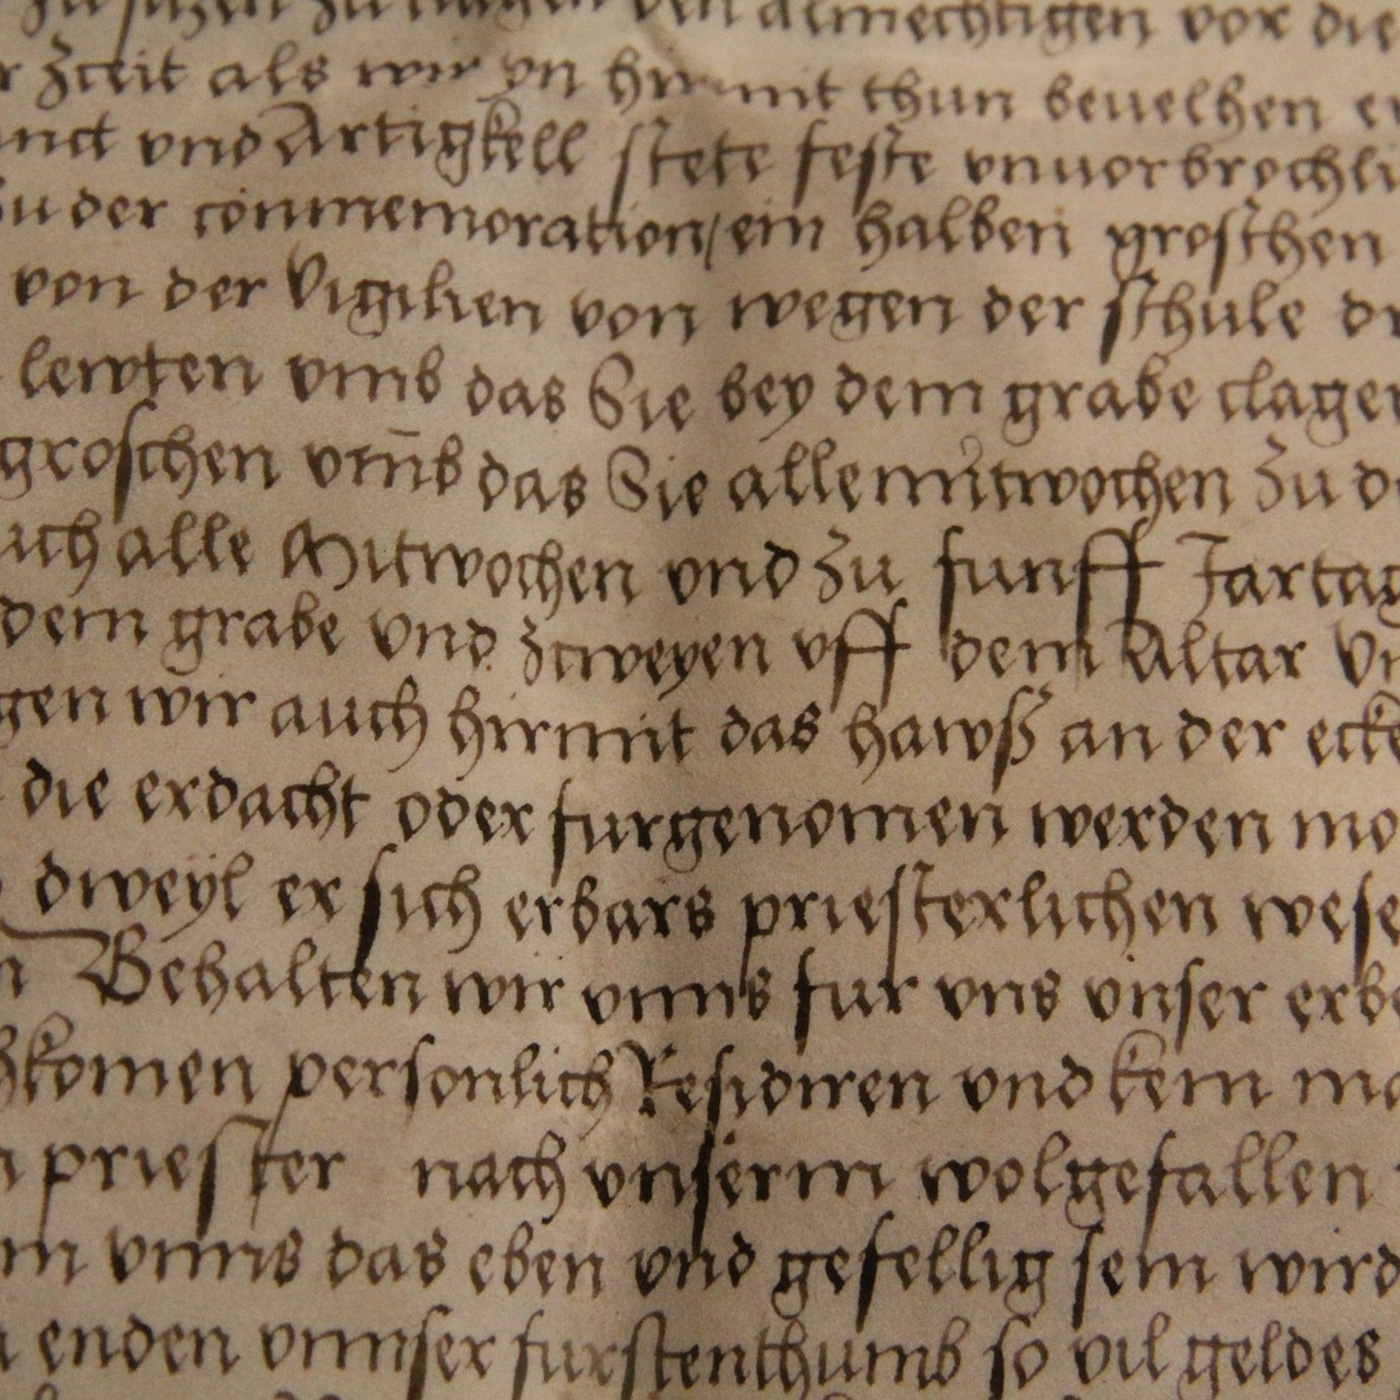 den almechtigen vor die
Zceit als wir yn hirmit thun beuelhen
vnd Artigkell stete feste vnuorbrochli
Zu der conmemoration / ein halben groschen
von der Vigilien von wegen der schule
lewten vmb das Sie bey dem grabe clagen
groschen vmb das Sie alle mitwochen Zu
uch alle Mitwochen vnd Zu funff Jartag
dem grabe vnd Zcweyen vff dem Altar Vn
gen wir auch hirmit das hawß an der ecke
die erdacht oder furgenomen werden mo
dweyl er sich erbars priesterlichen wese
Behalten wir vnns fur vns vnser erb
komen personlich Residiren vnd kein ma
priester nach vnserm wolgefallen
vnns das eben vnd gefellig sein wird
enden vnnser furstenthumb so vil geldes